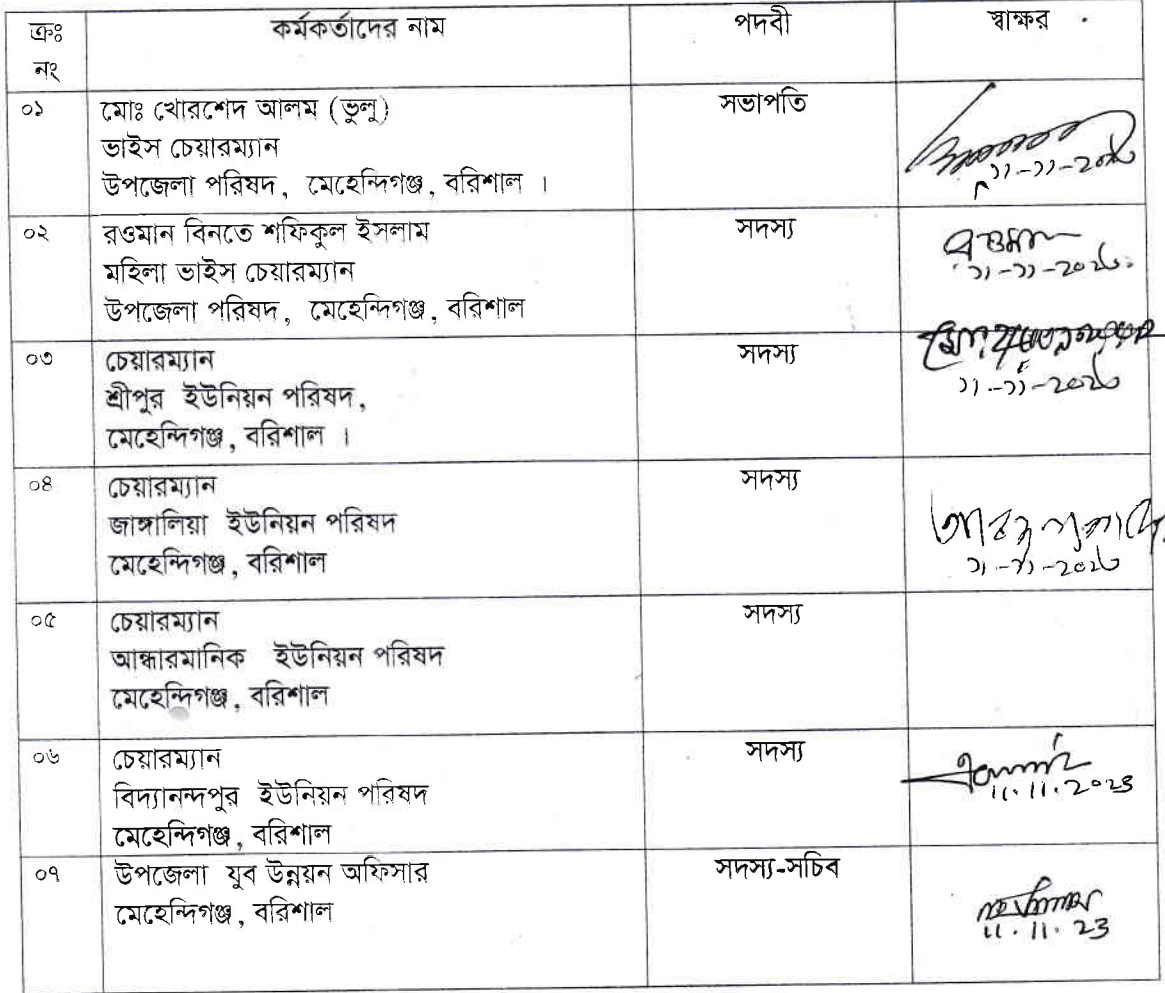 ক্রঃ নং কর্মকর্তাদের নাম পদবী স্বাক্ষর
০১ মোঃ খোরশেদ আলম (ভুলু) সভাপতি
ভাইস চেয়ারম্যান
উপজেলা পরিষদ, মেহেন্দিগঞ্জ, বরিশাল ।
১১-১১-২০২৩
০২ রওমান বিনতে শফিকুল ইসলাম সদস্য
মহিলা ভাইস চেয়ারম্যান
উপজেলা পরিষদ, মেহেন্দিগঞ্জ, বরিশাল
১১-১১-২০২৩
০৩ চেয়ারম্যান সদস্য
শ্রীপুর ইউনিয়ন পরিষদ,
মেহেন্দিগঞ্জ, বরিশাল ।
১১-১১-২০২৩
০৪ চেয়ারম্যান সদস্য
জাঙ্গালিয়া ইউনিয়ন পরিষদ
মেহেন্দিগঞ্জ, বরিশাল
১১-১১-২০২৩
০৫ চেয়ারম্যান সদস্য
আন্ধারমানিক ইউনিয়ন পরিষদ
মেহেন্দিগঞ্জ, বরিশাল
০৬ চেয়ারম্যান সদস্য
বিদ্যানন্দপুর ইউনিয়ন পরিষদ
মেহেন্দিগঞ্জ, বরিশাল
11.11.2023
০৭ উপজেলা যুব উন্নয়ন অফিসার সদস্য-সচিব
মেহেন্দিগঞ্জ, বরিশাল
11.11.23